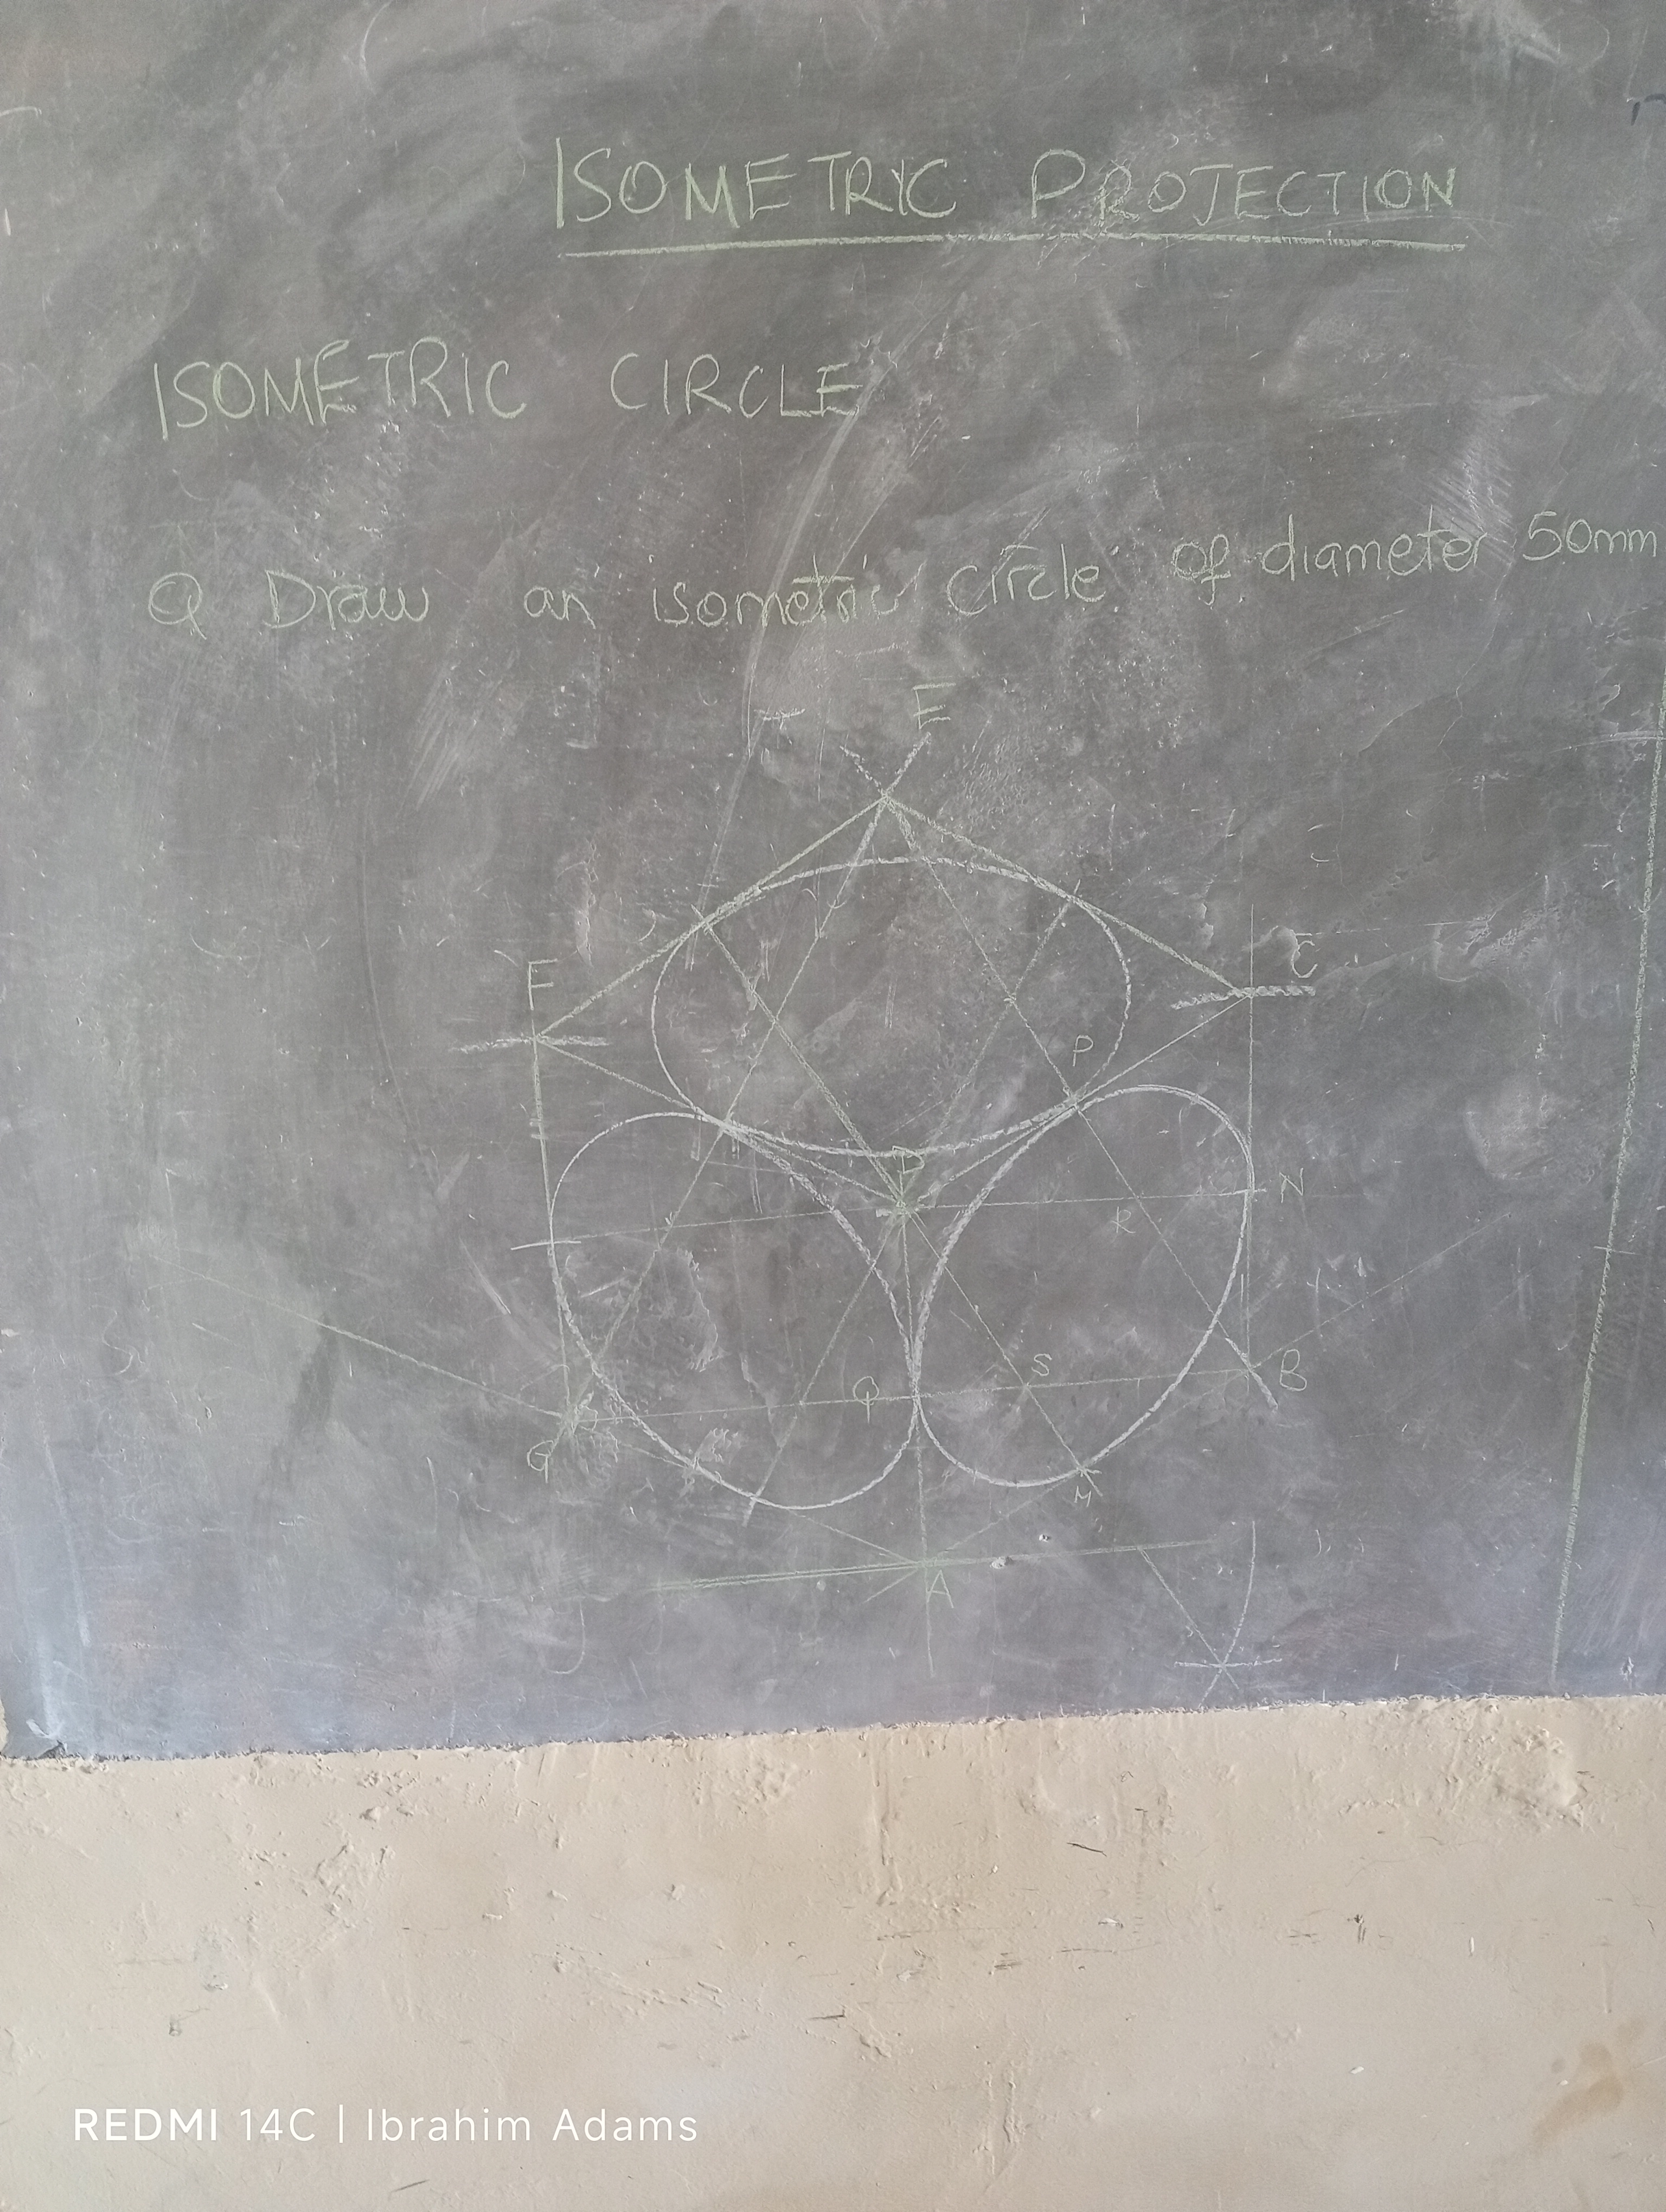 ISOMETRIC PROJECTION
ISOMETRIC CIRCLE
Q Draw an isometric circle of diameter 50mm
E
F
C
P
D
N
R
S
Q
B
G
M
A
REDMI 14C | Ibrahim Adams